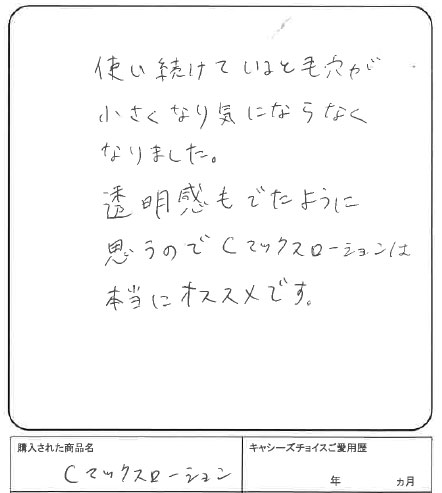 使い続けていると毛穴が
小さくなり気にならなく
なりました。
透明感もでたように
思うのでCマックスローションは
本当にオススメです。
購入された商品名
Cマックスローション
キャシーズチョイスご愛用歴
年 ヵ月